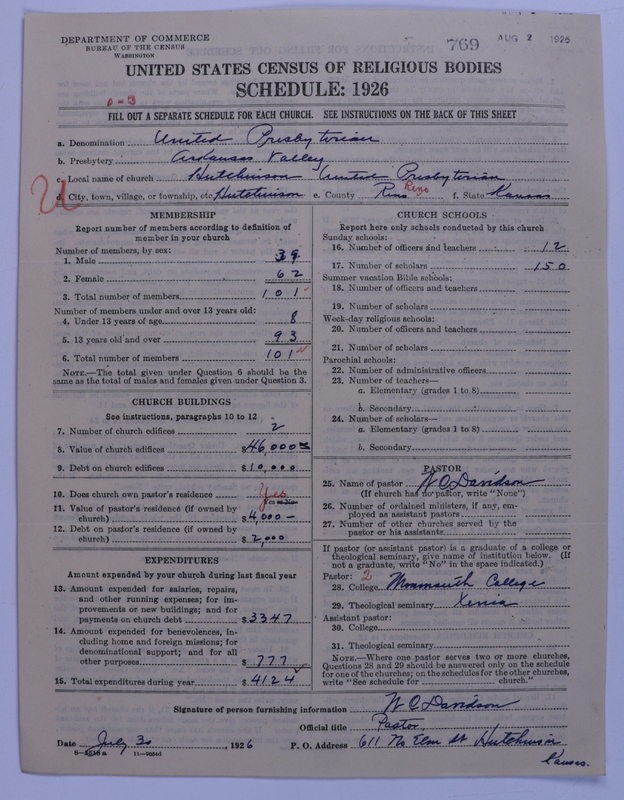 DEPARTMENT OF COMMERCE
BUREAU OF THE CENSUS
WASHINGTON
769
AUG 2 1926
UNITED STATES CENSUS OF RELIGIOUS BODIES
SCHEDULE: 1926
FILL OUT A SEPARATE SCHEDULE FOR EACH CHURCH. SEE INSTRUCTIONS ON THE BACK OF THIS SHEET
a. Denomination United Presbyterian
b. Presbytery Arkansas Valley
c. Local name of church Hutchinson United Presbyterian
d. City, town, village, or township, etc. Hutchinson e. County Reno Reno f. State Kansas
MEMBERSHIP
Report number of members according to definition of
member in your church
Number of members, by sex:
1. Male 39
2. Female 62
3. Total number of members 101
Number of members under and over 13 years old:
4. Under 13 years of age 8
5. 13 years old and over 93
6. Total number of members 101
NOTE.—The total given under Question 6 should be the
same as the total of males and females given under Question 3.
CHURCH BUILDINGS
See instructions, paragraphs 10 to 12
7. Number of church edifices 2
8. Value of church edifices $46,000
9. Debt on church edifices $10,000
10. Does church own pastor's residence Yes
Yes or No
11. Value of pastor's residence (if owned by
church) $4000—
12. Debt on pastor's residence (if owned by
church) $2,000
EXPENDITURES
Amount expended by your church during last fiscal year
13. Amount expended for salaries, repairs,
and other running expenses; for im-
provements or new buildings; and for
payments on church debt $3347
14. Amount expended for benevolences, in-
cluding home and foreign missions; for
denominational support; and for all
other purposes $777
15. Total expenditures during year $4124
CHURCH SCHOOLS
Report here only schools conducted by this church
Sunday schools:
16. Number of officers and teachers 12
17. Number of scholars 150
Summer vacation Bible schools:
18. Number of officers and teachers
19. Number of scholars
Week-day religious schools:
20. Number of officers and teachers
21. Number of scholars
Parochial schools:
22. Number of administrative officers
23. Number of teachers—
a. Elementary (grades 1 to 8)
b. Secondary
24. Number of scholars—
a. Elementary (grades 1 to 8)
b. Secondary
PASTOR
25. Name of pastor W C Davidson
(If church has no pastor, write "None")
26. Number of ordained ministers, if any, em-
ployed as assistant pastors
27. Number of other churches served by the
pastor or his assistants
If pastor (or assistant pastor) is a graduate of a college or
theological seminary, give name of institution below. (If
not a graduate, write "No" in the space indicated.)
Pastor: 2
28. College Monmouth College
29. Theological seminary Xenia
Assistant pastor:
30. College
31. Theological seminary
NOTE.—Where one pastor serves two or more churches,
Questions 28 and 29 should be answered only on the schedule
for one of the churches; on the schedules for the other churches,
write "See schedule for church."
Signature of person furnishing information W C Davidson
Official title Pastor
Date July 30, 1926 P. O. Address 611 No Elm St Hutchinson
Kansas.